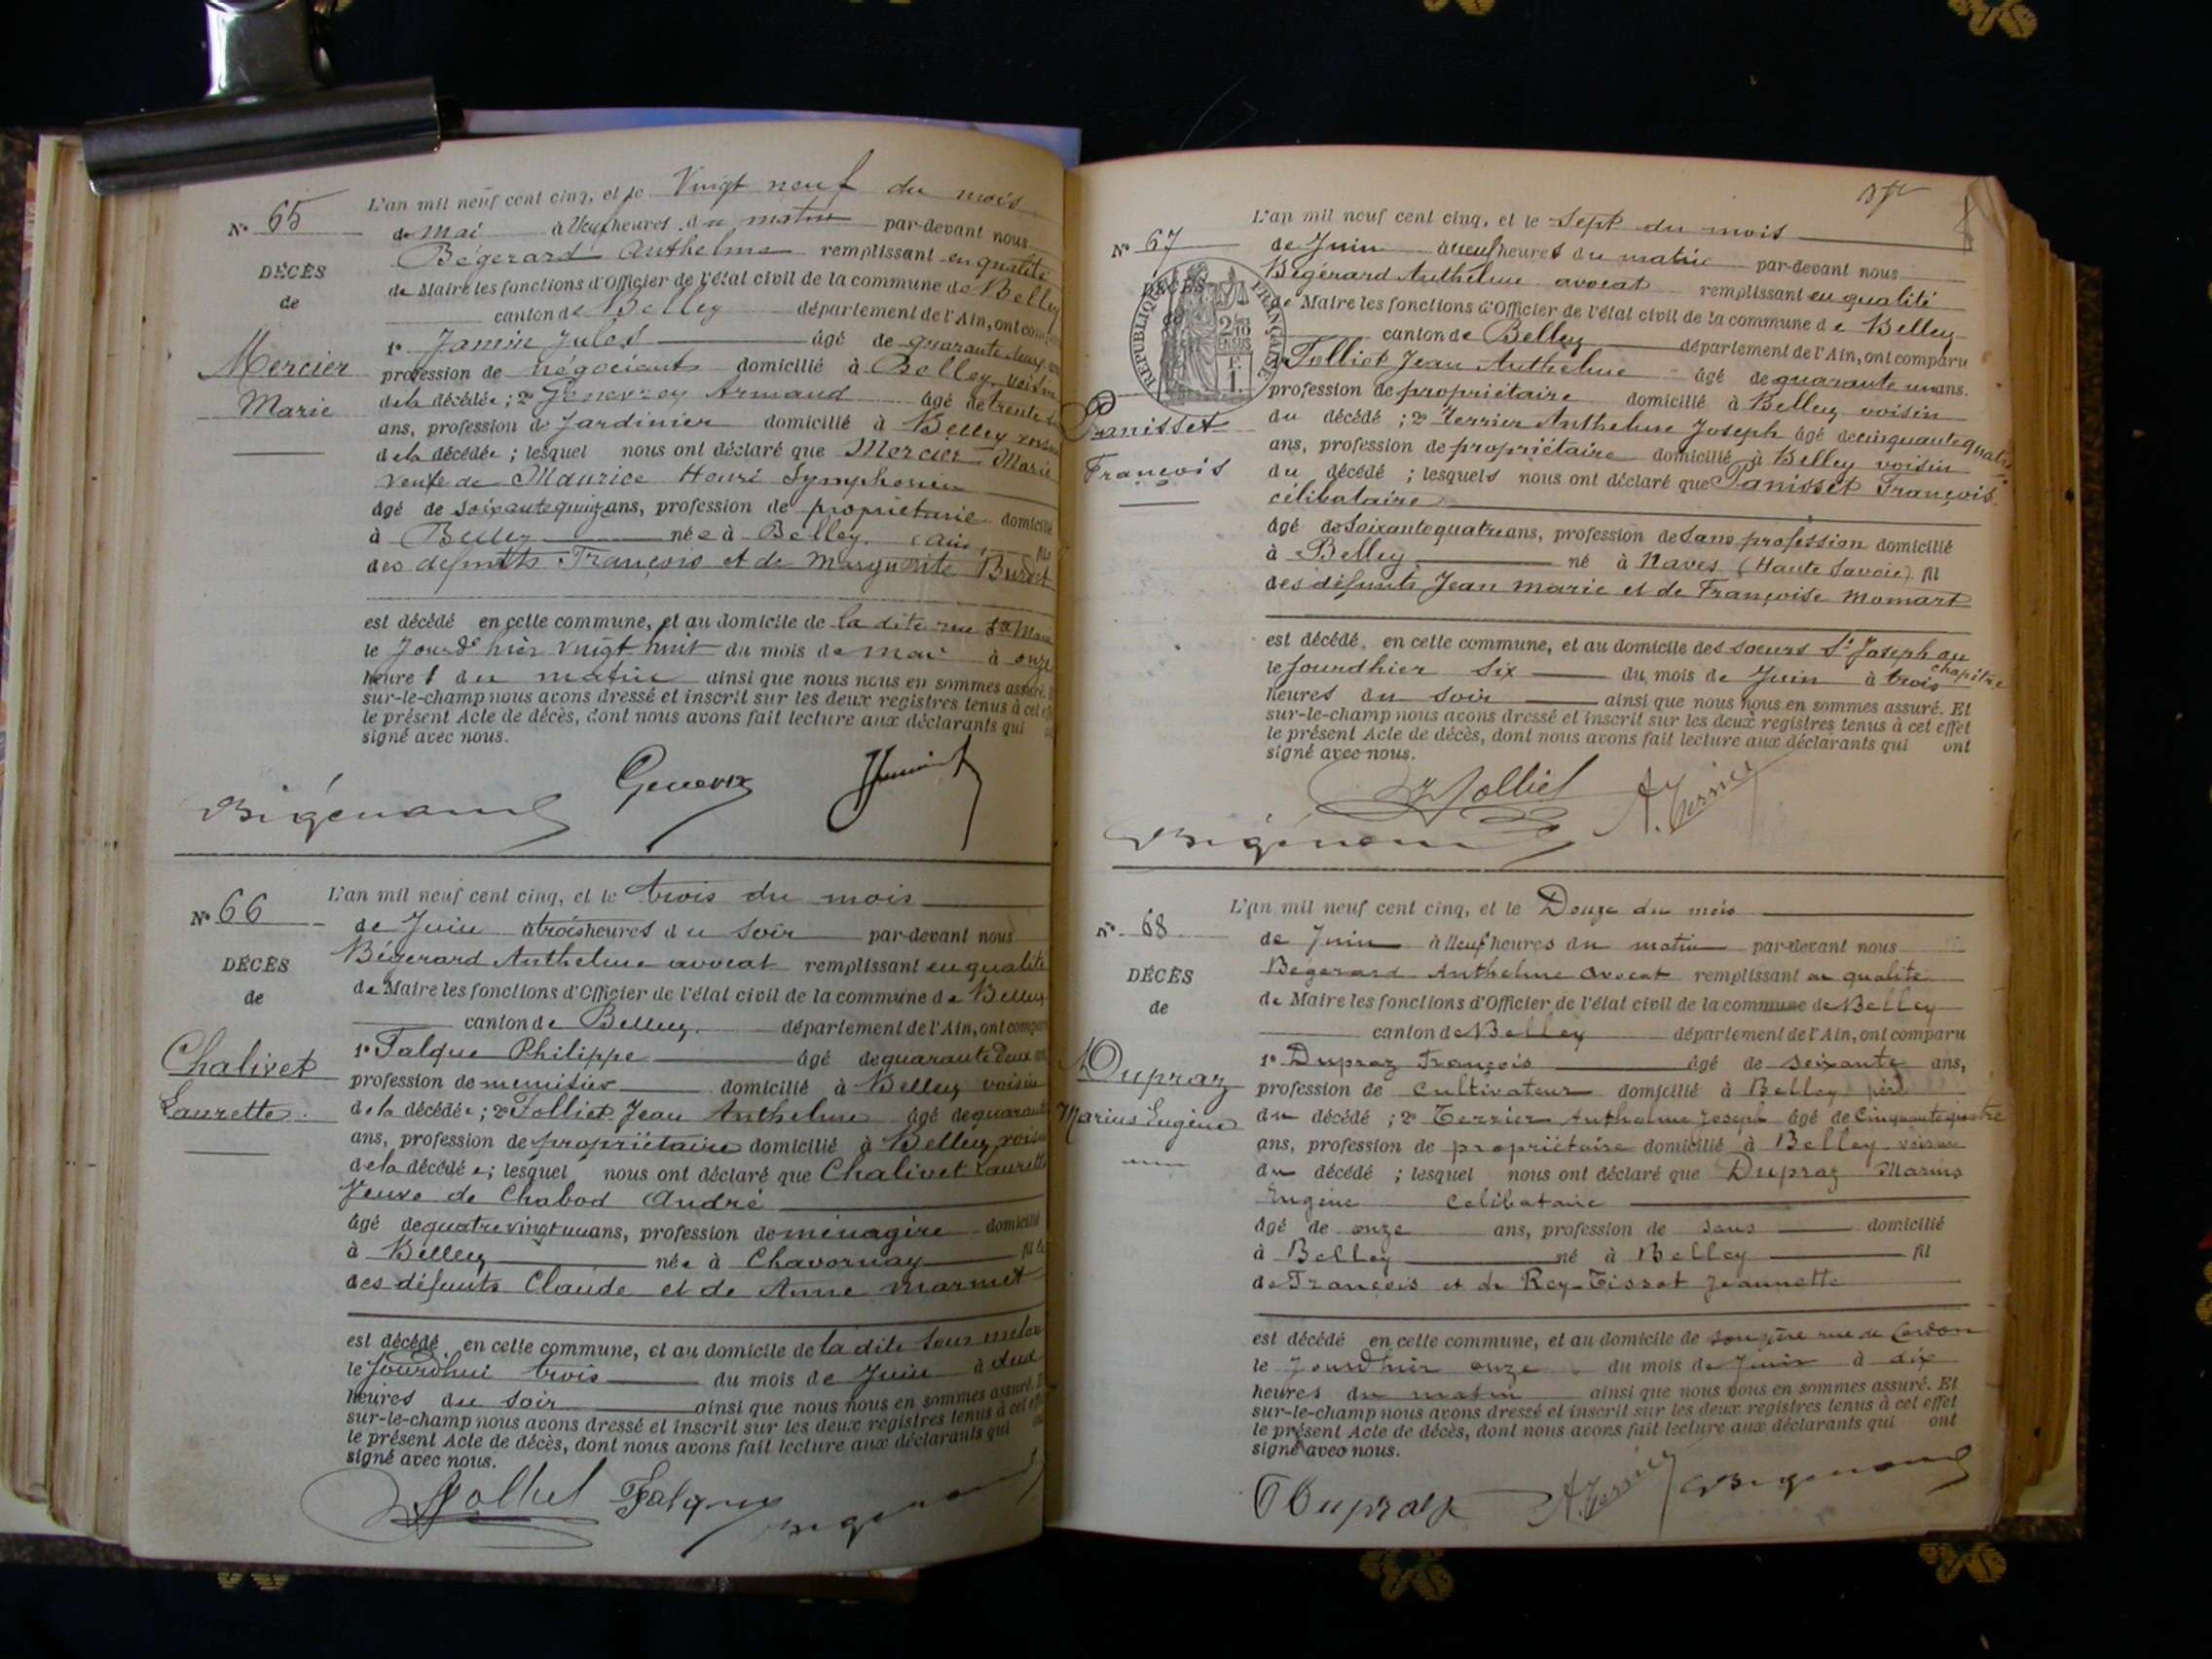 N° 65
DÉCÈS
de
Mercier
Marie
L'an mil neuf cent cinq, et le Vingt neuf du mois
de Mai à Neuf heures du matin par-devant nous
Bégerard Anthelme remplissant en qualité
de Maire les fonctions d'Officier de l'état civil de la commune de Belley
canton de Belley département de l'Ain, ont
1° Jamin Jules âgé de quarante deux
profession de négociant domicilié à Belley voisin
de la décédée ; 2° Genevrey Armand âgé de trente
ans, profession de Jardinier domicilié à Belley voisin
de la décédée ; lesquel nous ont déclaré que Mercier Marie
veuve de Maurice Henri Symphorien
âgé de soixante quinze ans, profession de propriétaire domicilié
à Belley née à Belley (Ain)
des défunts François et de Marguerite Burdet
est décédé en cette commune, et au domicile de la dite rue Ste Marie
le Jourd'hier vingt huit du mois de mai à onze
heures du matin ainsi que nous nous en sommes assuré. Et
sur-le-champ nous avons dressé et inscrit sur les deux registres tenus à cet effet
le présent Acte de décès, dont nous avons fait lecture aux déclarants qui
signé avec nous.
Bigérard Genevrey Jamin
N° 66
DÉCÈS
de
Chalivet
Laurette
L'an mil neuf cent cinq, et le trois du mois
de Juin à trois heures du soir par-devant nous
Bégerard Anthelme avocat remplissant en qualité
de Maire les fonctions d'Officier de l'état civil de la commune de Belley
canton de Belley département de l'Ain, ont comparu
1° Falque Philippe âgé de quarante deux ans
profession de menuisier domicilié à Belley voisin
de la décédée ; 2° Tolliet Jean Anthelme âgé de quarante
ans, profession de propriétaire domicilié à Belley voisin
de la décédée ; lesquel nous ont déclaré que Chalivet Laurette
Veuve de Chabod André
âgé de quatre vingt un ans, profession de ménagère domicilié
à Belley née à Chavornay fille
des défunts Claude et de Anne Marmet
est décédé en cette commune, et au domicile de la dite
le Jourd'hui trois du mois de Juin à deux
heures du soir ainsi que nous nous en sommes assuré. Et
sur-le-champ nous avons dressé et inscrit sur les deux registres tenus à cet effet
le présent Acte de décès, dont nous avons fait lecture aux déclarants qui
signé avec nous.
Tolliet Falque Bigérard
N° 67
DÉCÈS
de
RÉPUBLIQUE FRANÇAISE
Panisset
François
L'an mil neuf cent cinq, et le Sept du mois
de Juin à neuf heures du matin par-devant nous
Bégérard Anthelme avocat remplissant en qualité
de Maire les fonctions d'Officier de l'état civil de la commune de Belley
canton de Belley département de l'Ain, ont comparu
Tolliet Jean Anthelme âgé de quarante un ans.
profession de propriétaire domicilié à Belley voisin
du décédé ; 2° Terrier Anthelme Joseph âgé de cinquante quatre
ans, profession de propriétaire domicilié à Belley voisin
du décédé ; lesquels nous ont déclaré que Panisset François
célibataire
âgé de Soixante quatre ans, profession de Sans profession domicilié
à Belley né à Naves (Haute Savoie) fil
des défunts Jean Marie et de Françoise Momart
est décédé, en cette commune, et au domicile des soeurs St Joseph au
chapitre
le Jourdhier Six du mois de Juin à trois
heures du soir ainsi que nous nous en sommes assuré. Et
sur-le-champ nous avons dressé et inscrit sur les deux registres tenus à cet effet
le présent Acte de décès, dont nous avons fait lecture aux déclarants qui ont
signé avec nous.
Tolliet A. Terrier
Bigérard
N° 68
DÉCÈS
de
Dupraz
Marius Eugène
L'an mil neuf cent cinq, et le Douze du mois
de Juin à Neuf heures du matin par-devant nous
Bégerard Anthelme avocat remplissant en qualité
de Maire les fonctions d'Officier de l'état civil de la commune de Belley
canton de Belley département de l'Ain, ont comparu
1° Dupraz François âgé de soixante ans,
profession de cultivateur domicilié à Belley père
du décédé ; 2° Terrier Anthelme Joseph âgé de Cinquante quatre
ans, profession de propriétaire domicilié à Belley voisin
du décédé ; lesquel nous ont déclaré que Dupraz Marius
Eugène Célibataire
âgé de onze ans, profession de sans domicilié
à Belley né à Belley fil
de François et de Rey-Tissot Jeannette
est décédé en cette commune, et au domicile de son père rue de Cordon
le Jourd'hier onze du mois de Juin à dix
heures du matin ainsi que nous nous en sommes assuré. Et
sur-le-champ nous avons dressé et inscrit sur les deux registres tenus à cet effet
le présent Acte de décès, dont nous avons fait lecture aux déclarants qui ont
signé avec nous.
Dupraz A. Terrier Bigérard